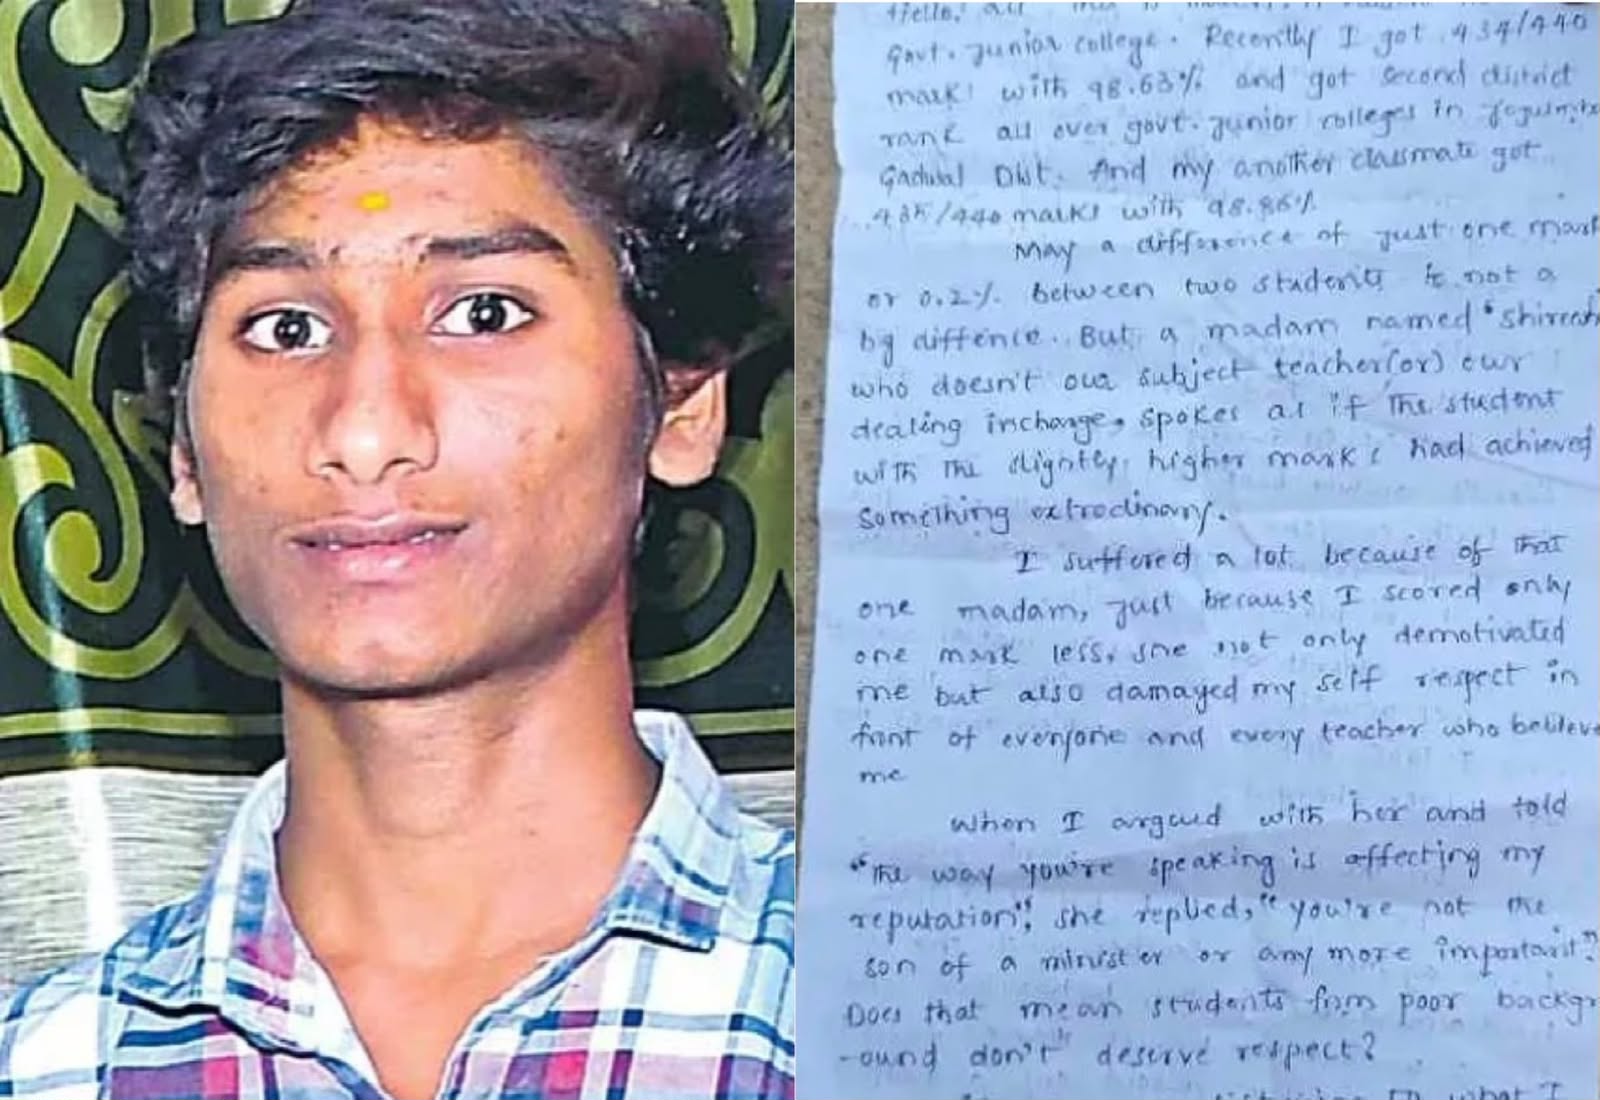 Hello, all This is
Govt. Junior college. Recently I got 434/440
marks with 98.63% and got second district
rank all over govt. junior colleges in
Gadwal Dist. And my another classmate got
435/440 marks with 98.86%
May a difference of just one mark
or 0.2% between two students is not a
big diffence. But a madam named "
who doesn't our subject teacher(or) our
dealing incharge, spokes as if the student
with the slightly higher marks had achieved
something extrodinary.
I suffered a lot because of that
one madam, just because I scored only
one mark less, she not only demotivated
me but also damayed my self respect in
front of everyone and every teacher who believe
me
When I argued with her and told
"The way you're speaking is affecting my
reputation", she replied, "you're not the
son of a minister or any more important"
Does that mean students from poor backgr
-ound don't deserve respect?
to what I